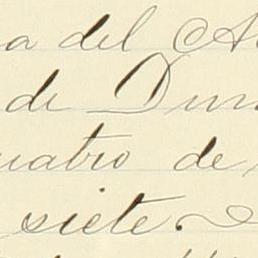 a del
de Dun
uatro de
siete.